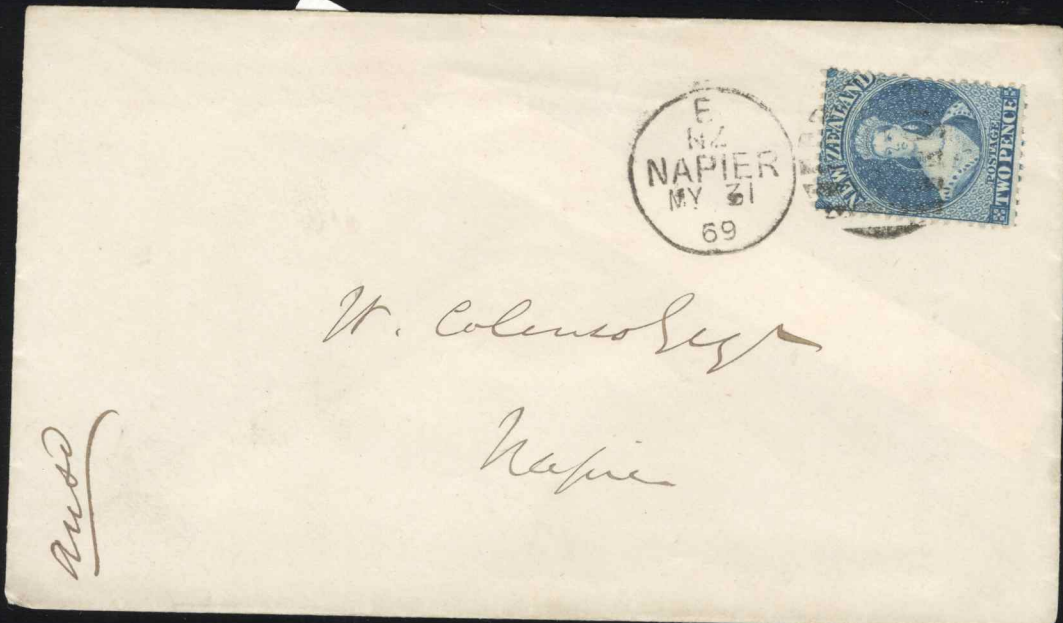 E
NZ
NAPIER
MY 31
69
NEW ZEALAND
POSTAGE
TWO PENCE
W. Colenso Esqr
Napier
ansd